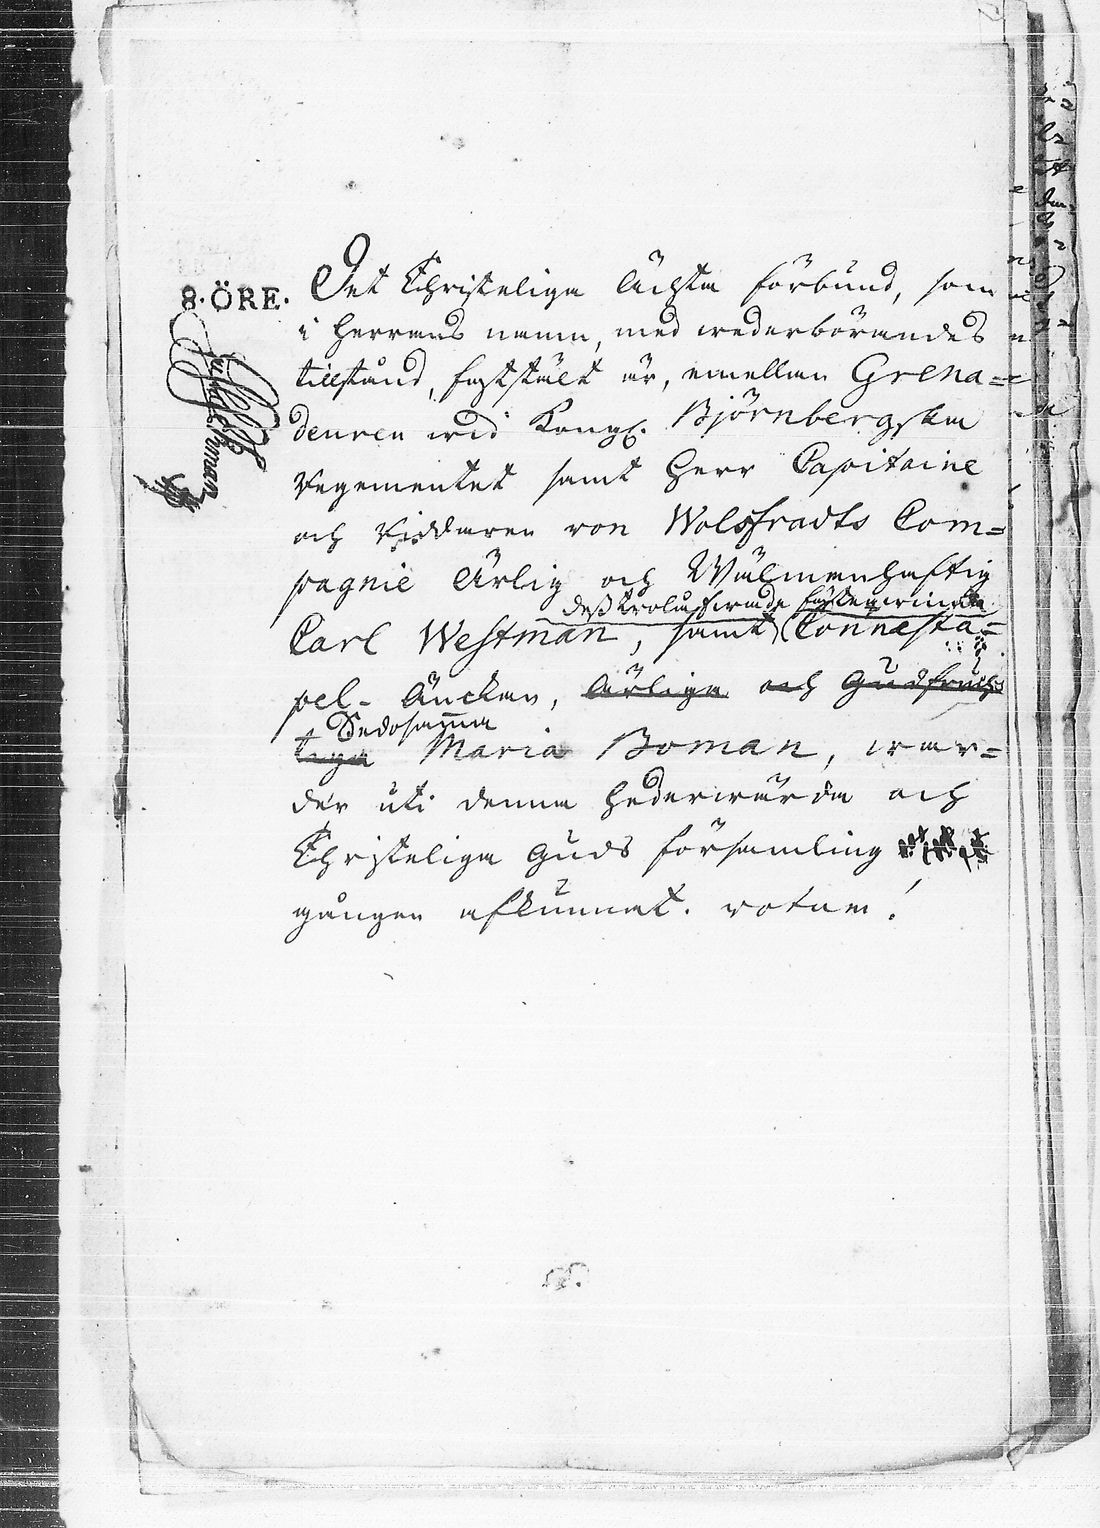 8. ÖRE.
Det Christeliga Ächta förbund, som
i Herrans namn, med wederbörandes
tillstånd, faststält är, emellan Grena=
deuren wid Kongl. Björnbergska
Regementet samt Herr Capitaine
och Riddaren von Wolffradts Com=
pagnie Ärlig och Wälmanhaftig
dess trolofwade fästeqwinna
Carl Westman, samt Connesta=
pel- Änckan, Ärliga och Gudfruch
tiga Sedosamma Maria Boman, war=
der uti denna Hederwärda och
Christeliga Guds församling
gången afkunnat. votum!